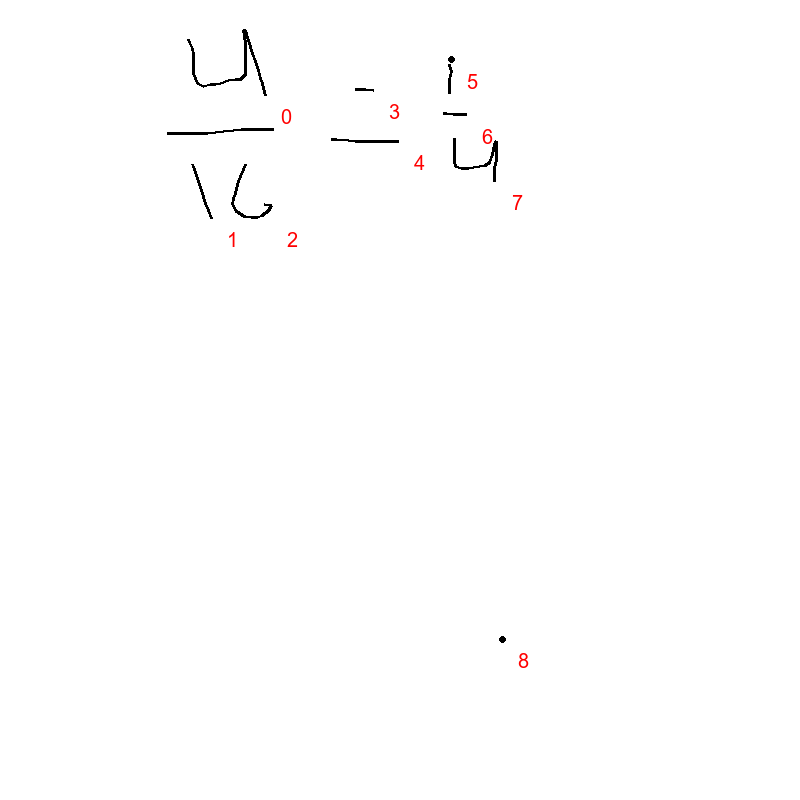 4/16 = 1/4
0
1
2
3
4
5
6
7
8